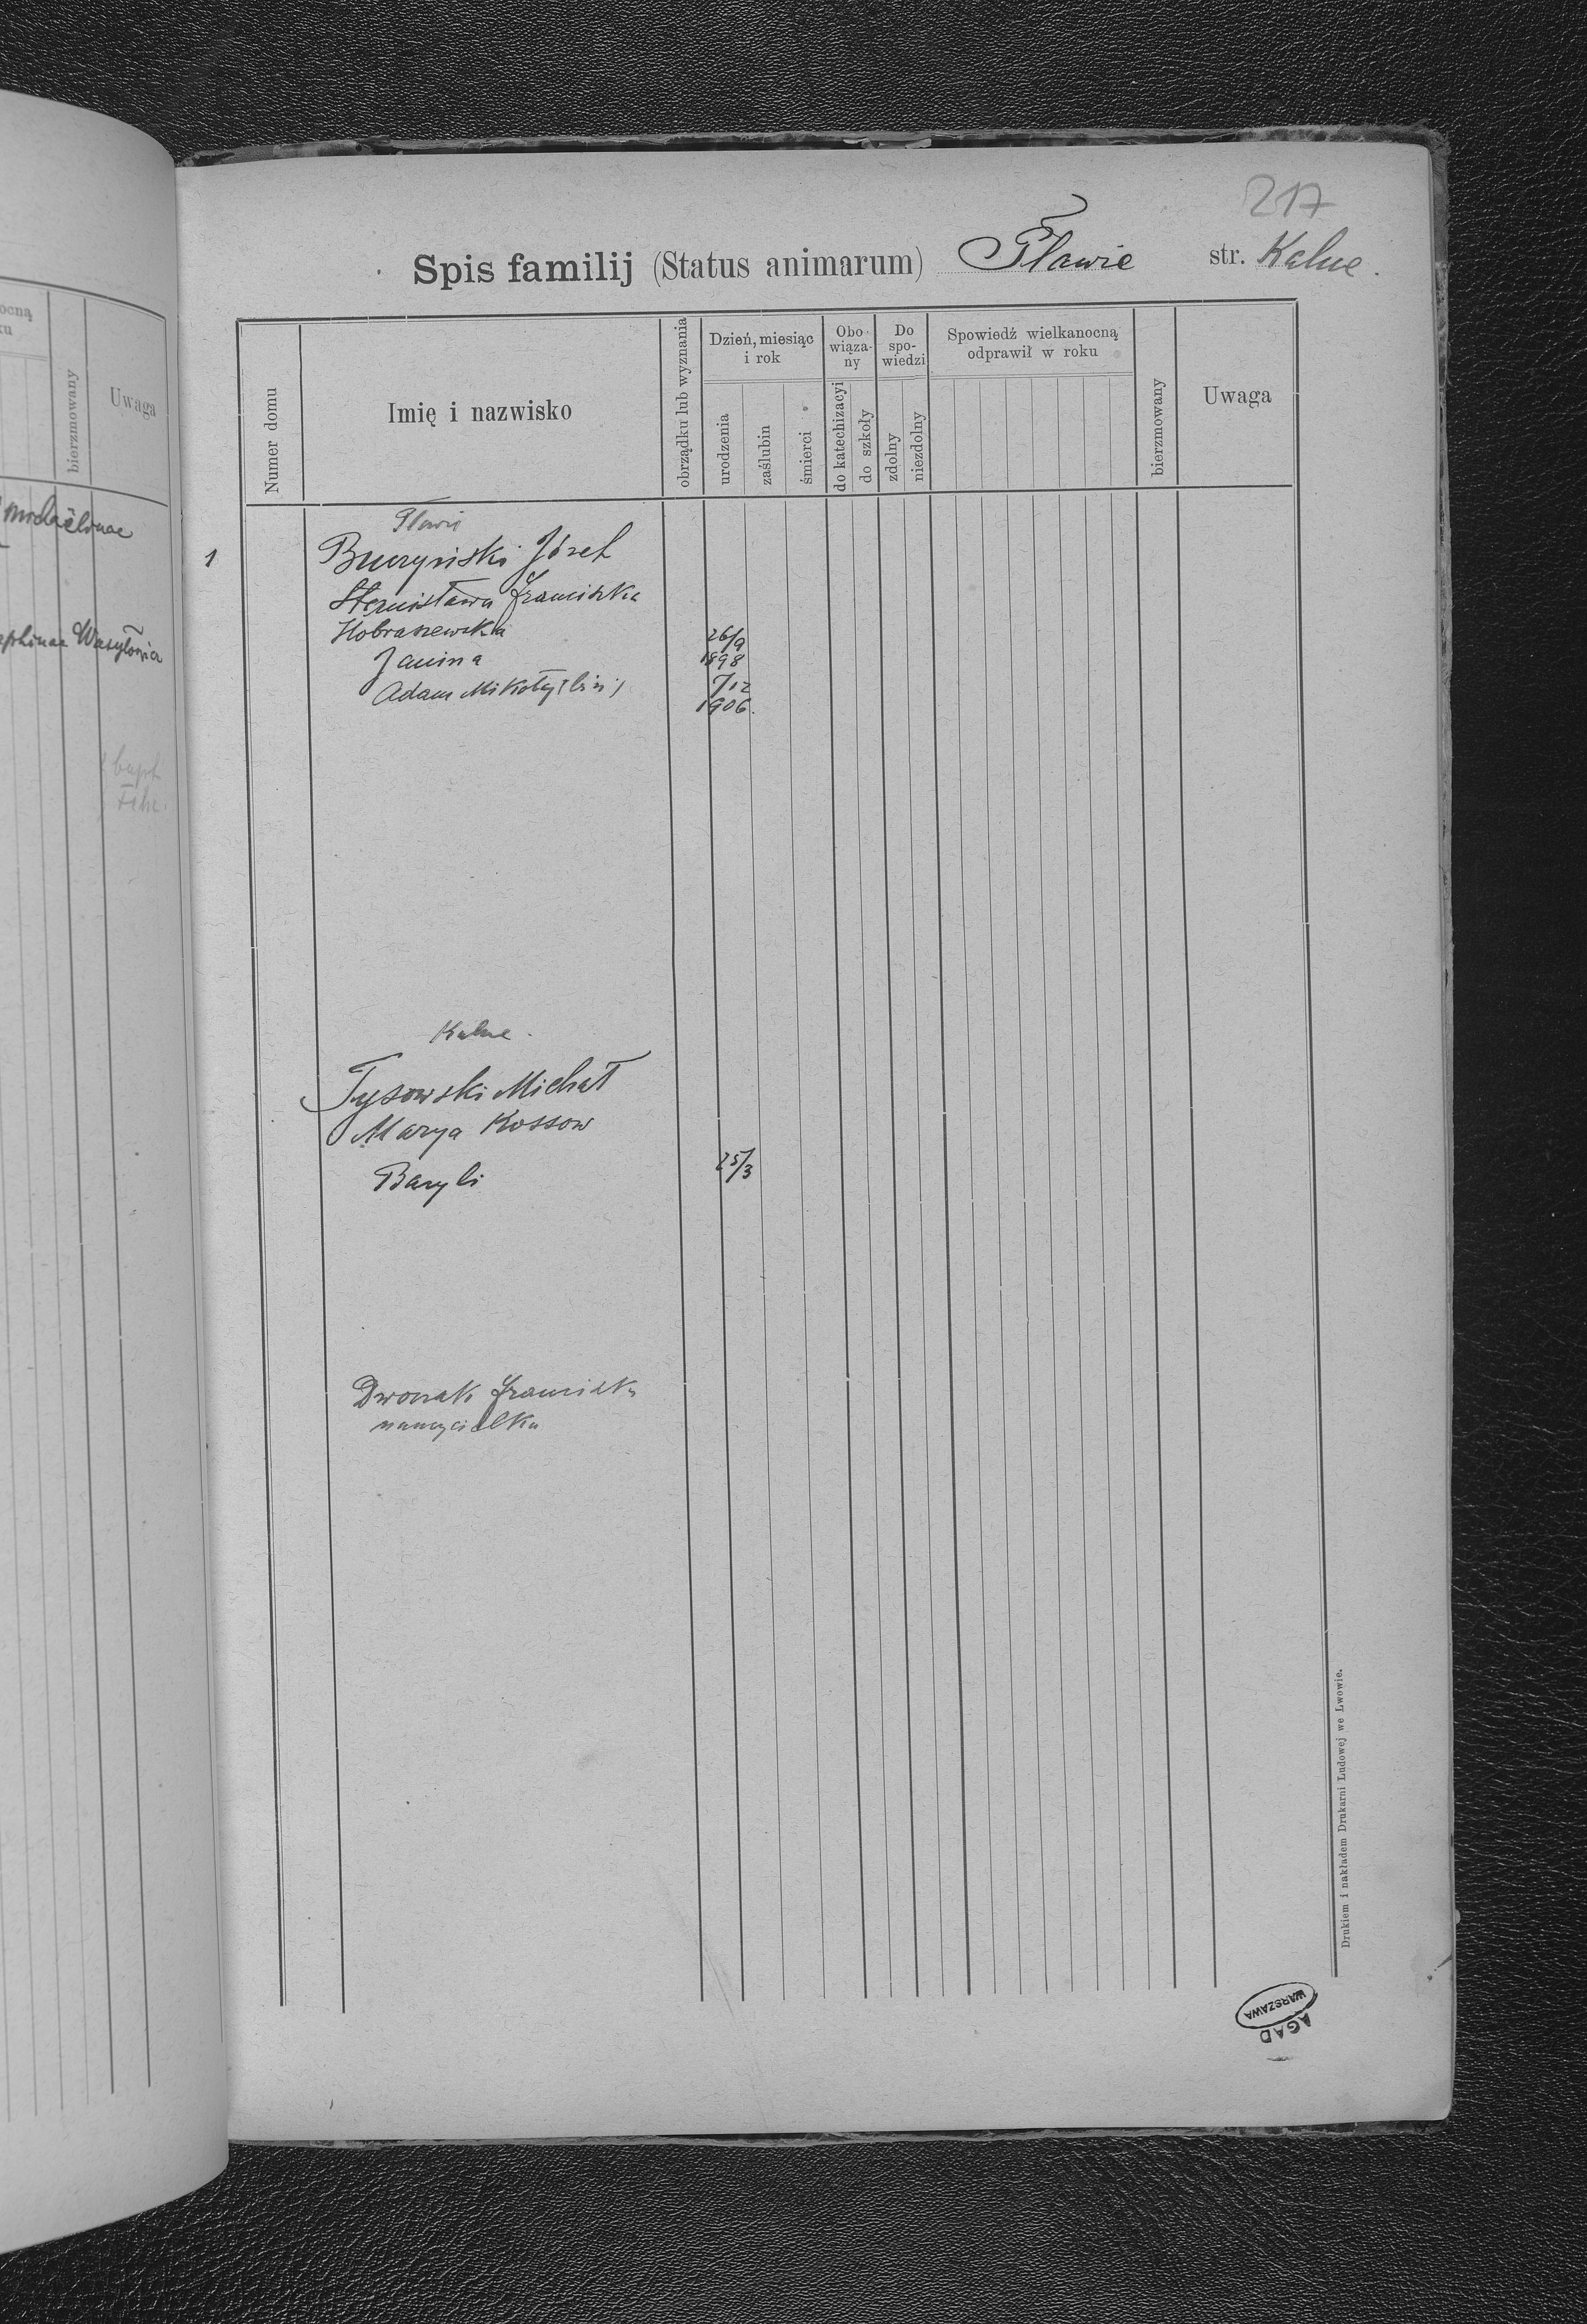 ocną
ku
bierzmowany
Uwaga
Wasylonia
bapt
217
Spis familij (Status animarum) Pławie str. Kalne.
Numer domu
Imię i nazwisko
obrządku lub wyznania
Dzień, miesiąc
i rok
urodzenia
zaślubin
śmierci
Obo-
wiąza-
ny
do katechizacyi
do szkoły
Do
spo-
wiedzi
zdolny
niezdolny
Spowiedź wielkanocną
odprawił w roku
bierzmowany
Uwaga
Pławie
1 Buczyński Józef
Stanisława Franciszka
Janina 26/9
1898
Adam Mikołaj 7/12
1906.
Kalne.
Tysowski Michał
Marya Kossow
Baryli 25/3
Dworzak Franciszka
nauczycielka
Drukiem i nakładem Drukarni Ludowej we Lwowie.
AGAD
WARSZAWA